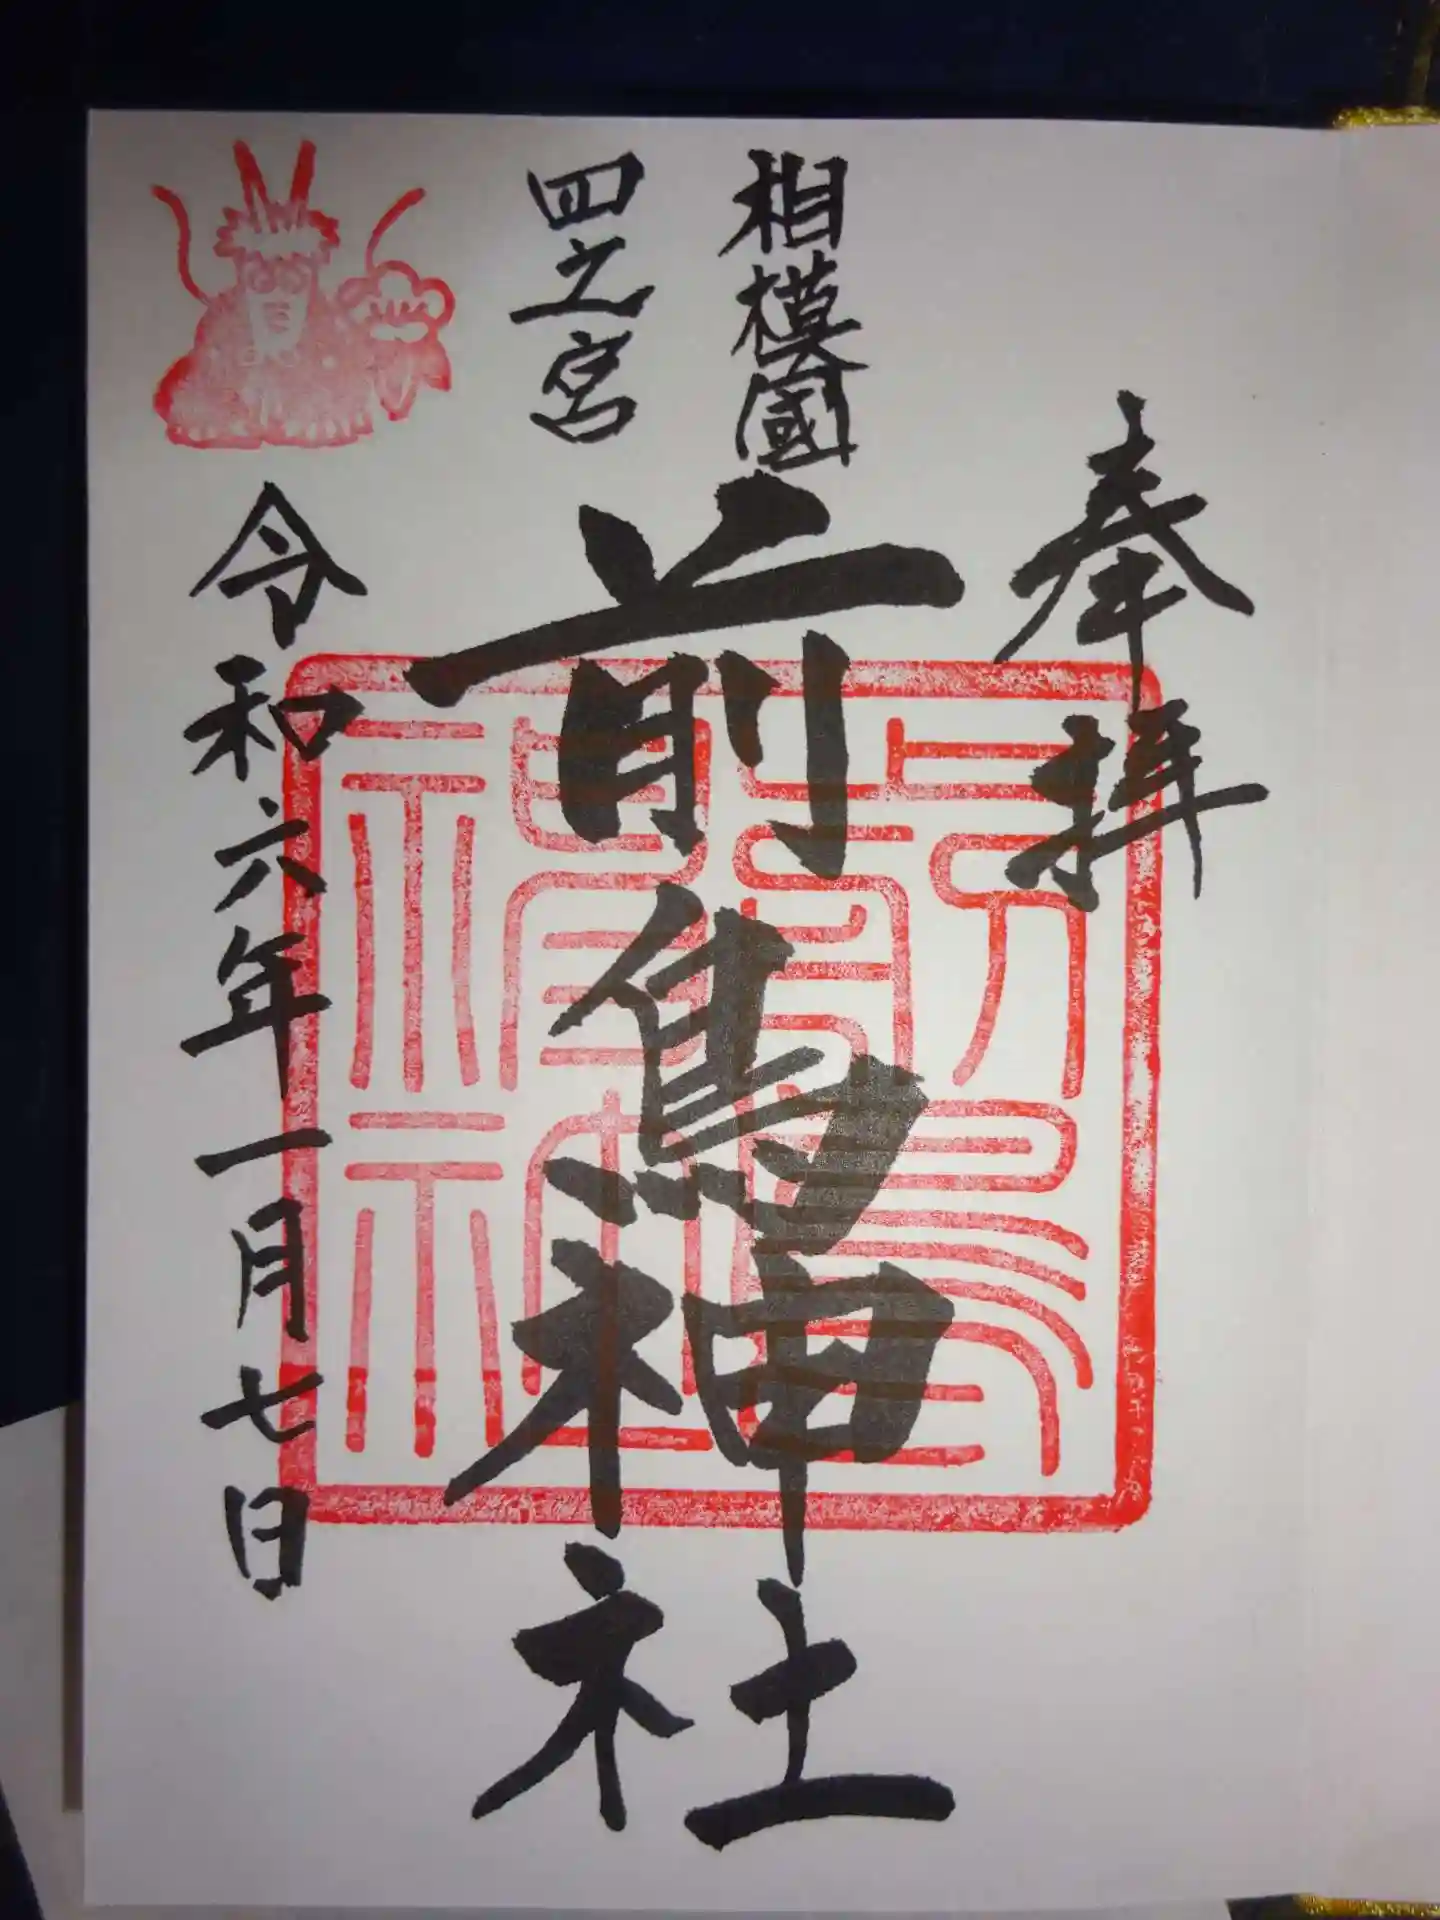 奉拝
相模國
四之宮
前鳥神社
令和六年一月七日